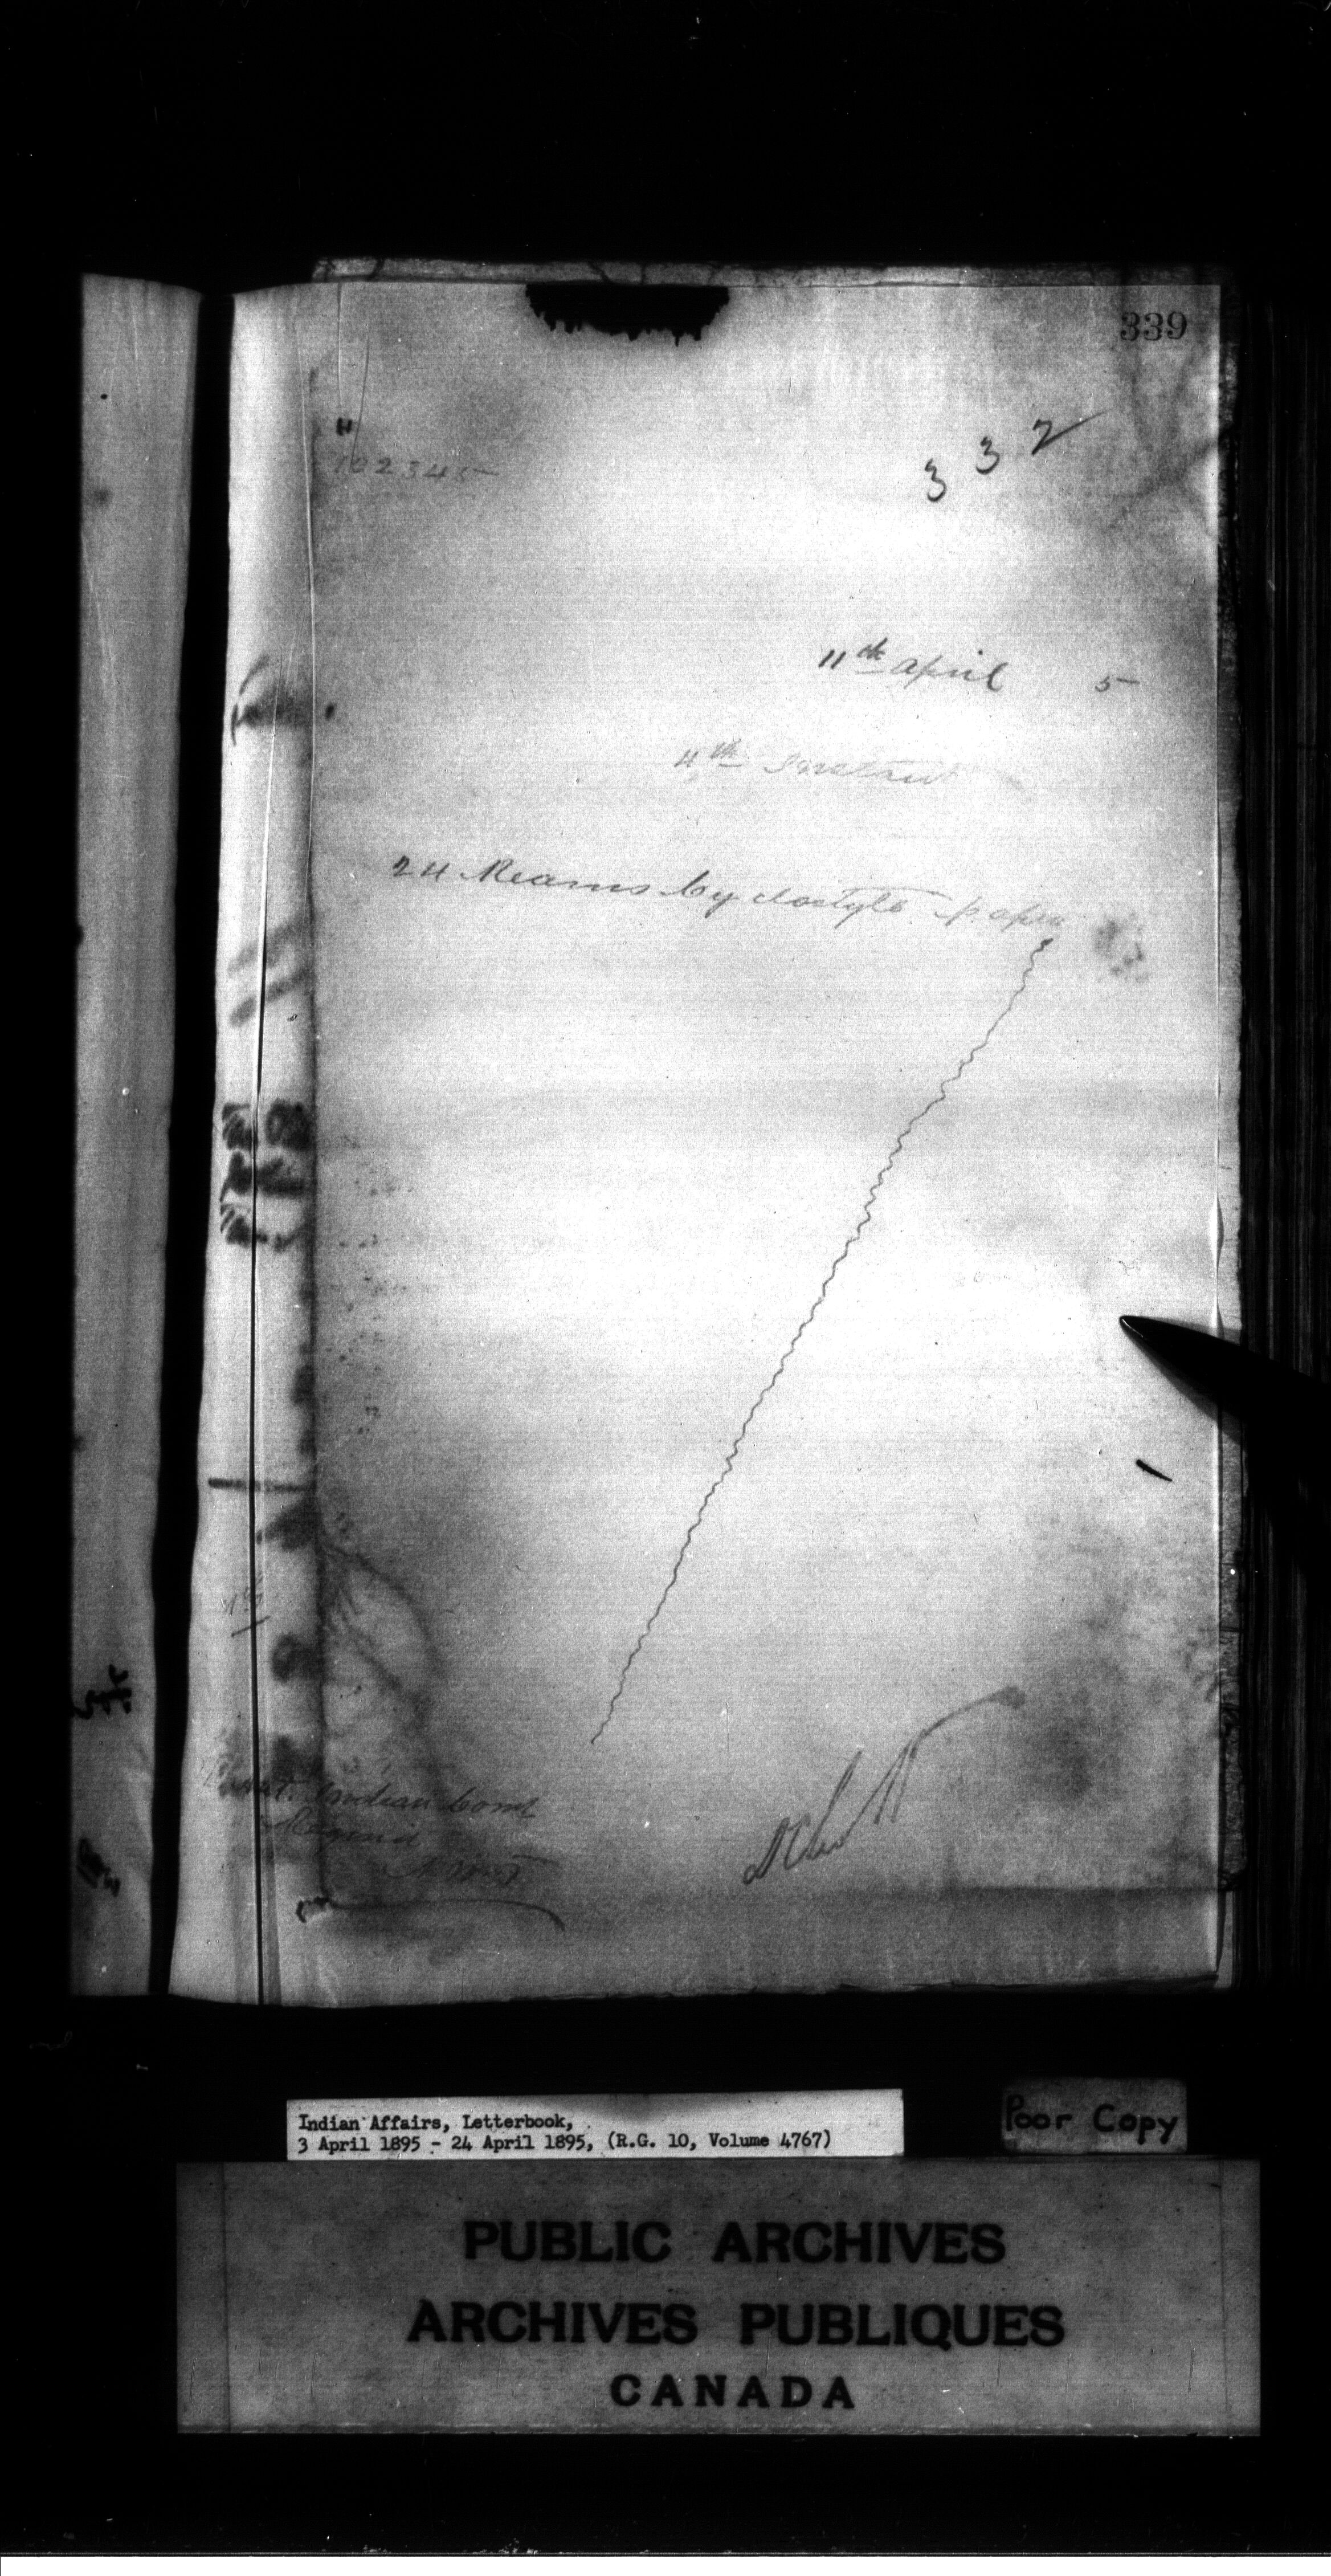 339
332
H
102345
11th April 5
4th Instant
24 Reams Cyclostyle paper
Indian Comr
Regina
N.W.T.
Indian Affairs, Letterbook,
3 April 1895 - 24 April 1895, (R.G. 10, Volume 4767)
Poor Copy
PUBLIC ARCHIVES
ARCHIVES PUBLIQUES
CANADA